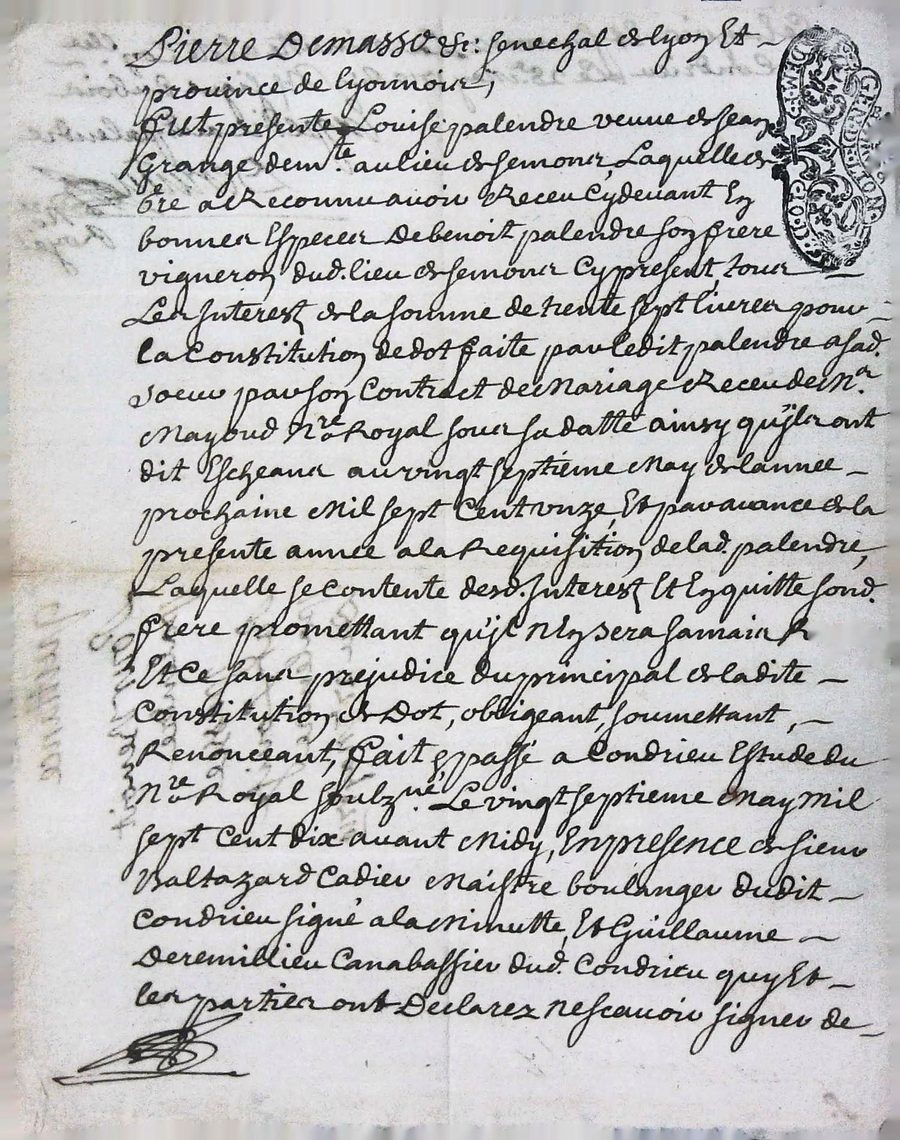 Pierre Demasso &c: senechal de lyon Et
province de lyonnois,
fut presente Louise palendre veuve de Jean
Grange demte. au lieu de semons, Laquelle de
gre a Reconnu avoir Receu Cydevant En
bonnes Especes De benoit palendre son frere
vigneron dud. lieu de semons Cy present, tous
Les Interest de la somme de trente sept livres pour
la Constitution de dot faite par ledit palendre a sad.
soeur par son Contract de Mariage Receu de Me
Mayoud Nre Royal sous sa datte ainsy quils ont
dit Escheans au vingt septieme May de lannee
prochaine Mil sept Cent unze, Et par avance de la
presente annee a la Requisition de lad. palendre,
Laquelle se Contente desd. Interest Et En quitte sond.
frere promettant quil n En sera Jamais R
Et Ce sans prejudice du principal de ladite
Constitution de Dot, obligeant, soumettant,
Renonceant, fait & passé a Condrieu Estude du
Nre Royal soubzné. Le vingt septieme May Mil
sept Cent dix avant Midy, En presence de sieur
Baltazard Cadier Maistre boulanger dudit
Condrieu signé a la Minutte, Et Guillaume
Deremillieu Canabassier dud. Condrieu quy Et
les parties ont Declarez ne scavoir signer de